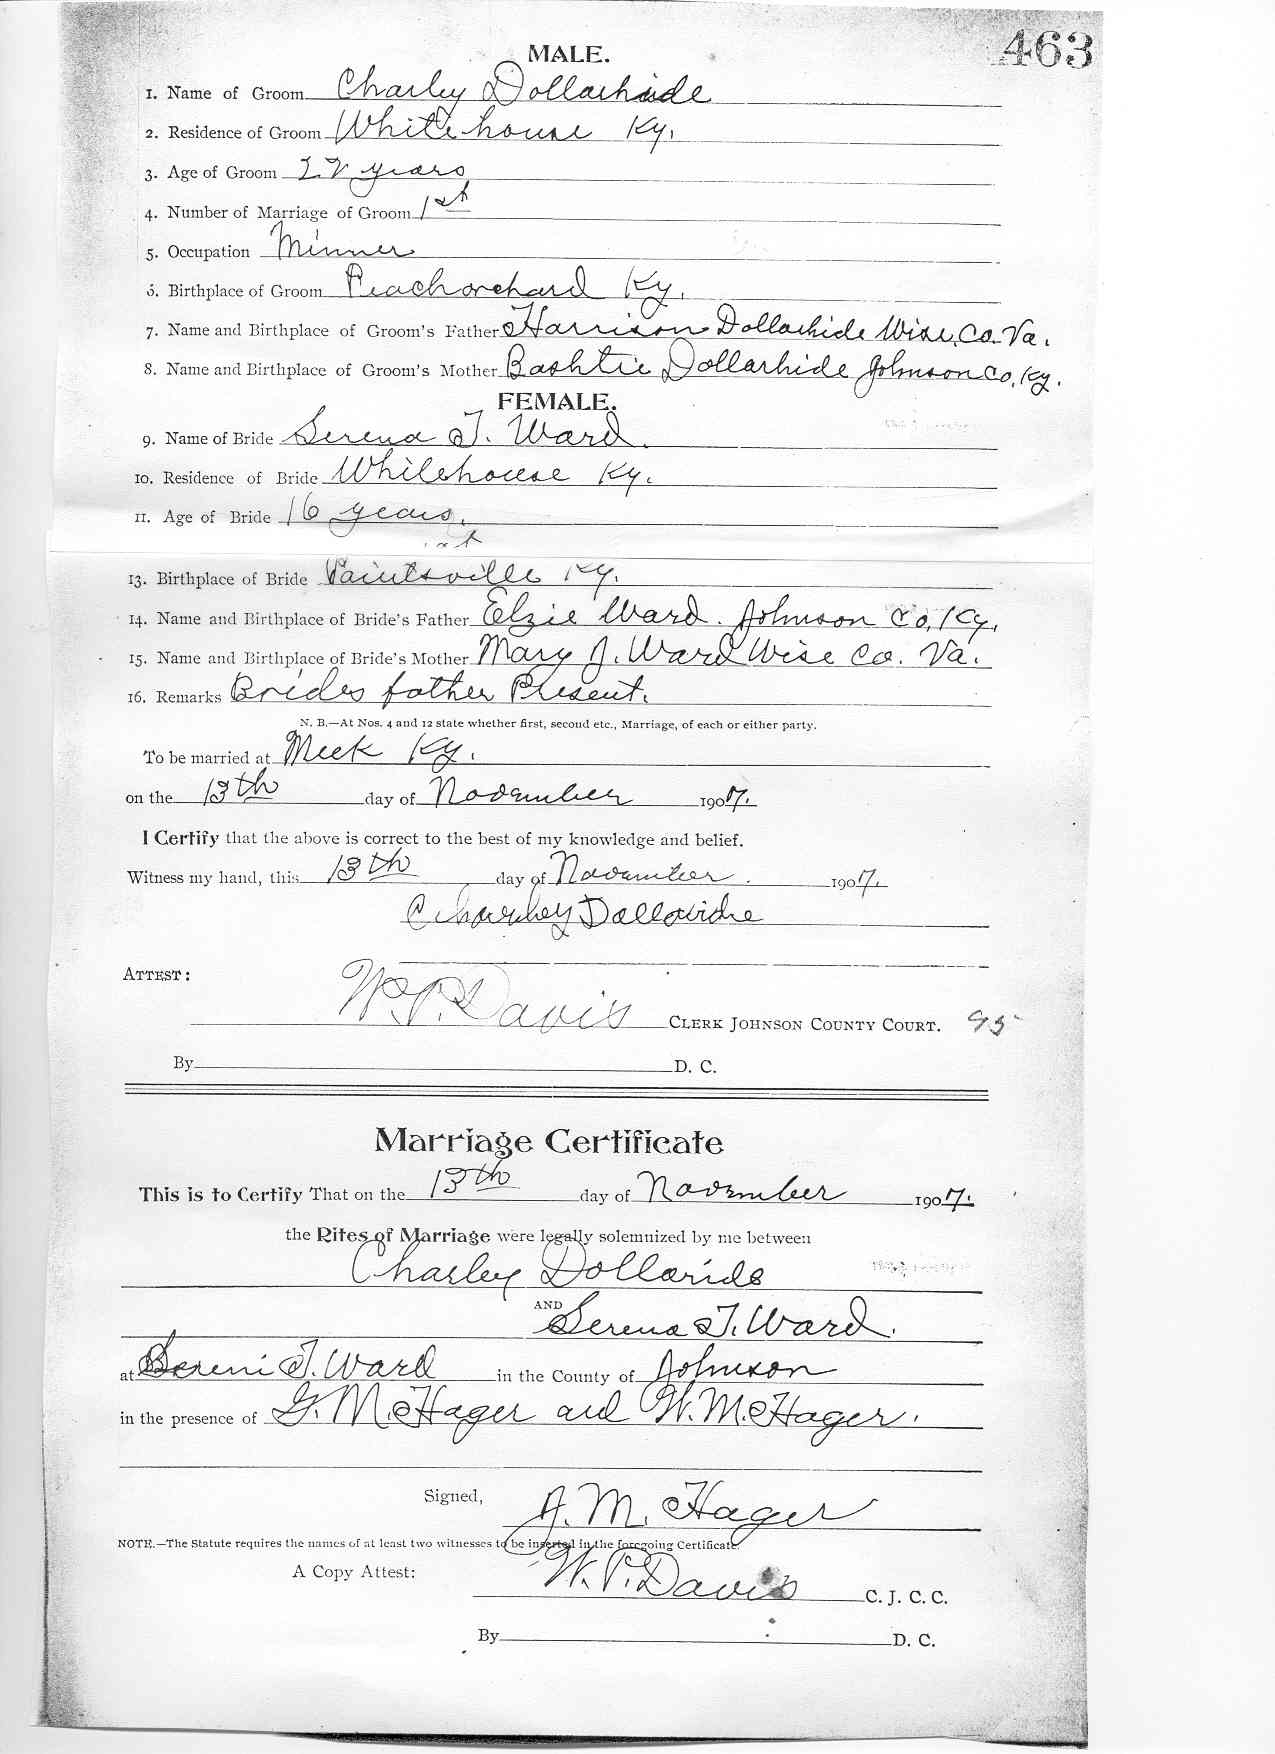 463
MALE.
1. Name of Groom Charley Dollarhide
2. Residence of Groom Whitehouse Ky.
3. Age of Groom 22 years
4. Number of Marriage of Groom 1st
5. Occupation Minner
6. Birthplace of Groom Peachorchard Ky.
7. Name and Birthplace of Groom's Father Harrison Dollarhide Wise, Co. Va.
8. Name and Birthplace of Groom's Mother Bashtie Dollarhide Johnson Co, Ky.
FEMALE.
9. Name of Bride Serena T. Ward.
10. Residence of Bride Whitehouse Ky.
11. Age of Bride 16 years.
13. Birthplace of Bride Paintsville Ky.
14. Name and Birthplace of Bride's Father Elzie Ward. Johnson Co, Ky,
15. Name and Birthplace of Bride's Mother Mary J. Ward Wise Co. Va.
16. Remarks Brides father Present.
N. B.—At Nos. 4 and 12 state whether first, second etc., Marriage, of each or either party.
To be married at Meek Ky.
on the 13th day of November 1907.
I Certify that the above is correct to the best of my knowledge and belief.
Witness my hand, this 13th day of November. 1907.
Charley Dollarhide
ATTEST:
W. P. Davis CLERK JOHNSON COUNTY COURT. 95
By D. C.
Marriage Certificate
This is to Certify That on the 13th day of November 1907.
the Rites of Marriage were legally solemnized by me between
Charley Dollaride
AND Serena T. Ward.
at Sereni T. Ward in the County of Johnson
in the presence of G. McHager and W. McHager.
Signed, A. M. Hager
NOTE.—The Statute requires the names of at least two witnesses to be inserted in the foregoing Certificate.
A Copy Attest: W. P. Davis C. J. C. C.
By D. C.